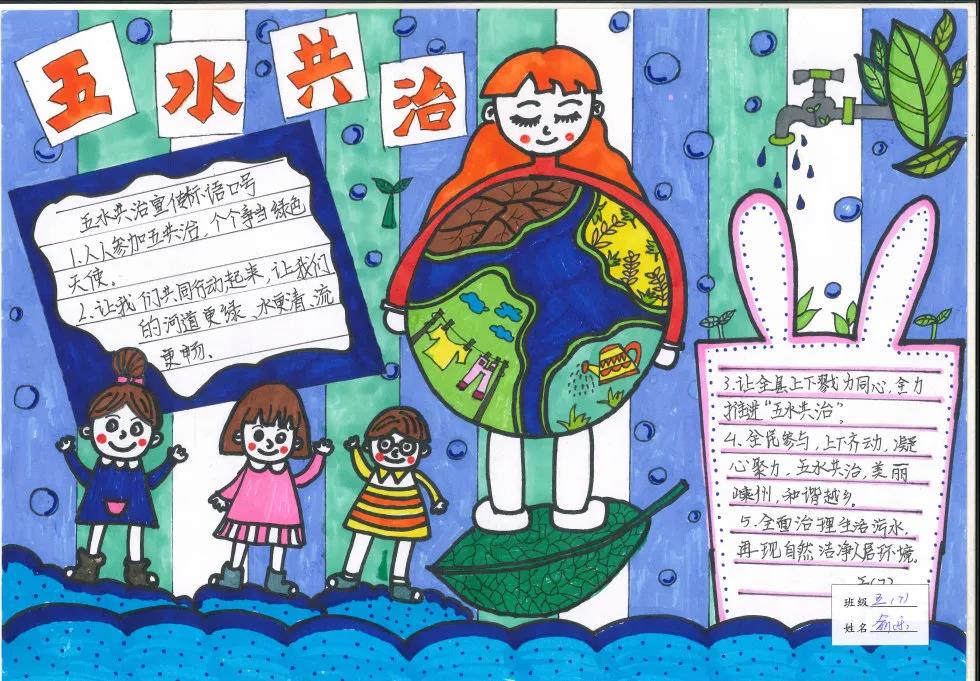 五水共治
五水共治宣传标语口号
1.人人参加五共治，个个争当绿色
天使。
2.让我们共同行动起来，让我们
的河道更绿、水更清、流
更畅。
3.让全县上下戮力同心，全力
推进“五水共治”。
4.全民参与，上下齐动，凝
心聚力，五水共治，美丽
嵊州，和谐越乡。
5.全面治理生活污水，
再现自然洁净人居环境。
五(7)
班级 五(7)
姓名